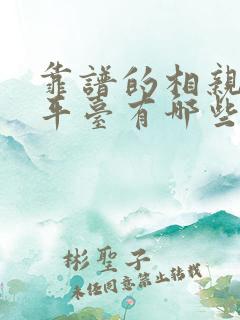 靠譜的相親
平臺有哪些
彬聖子
未經同意禁止轉載